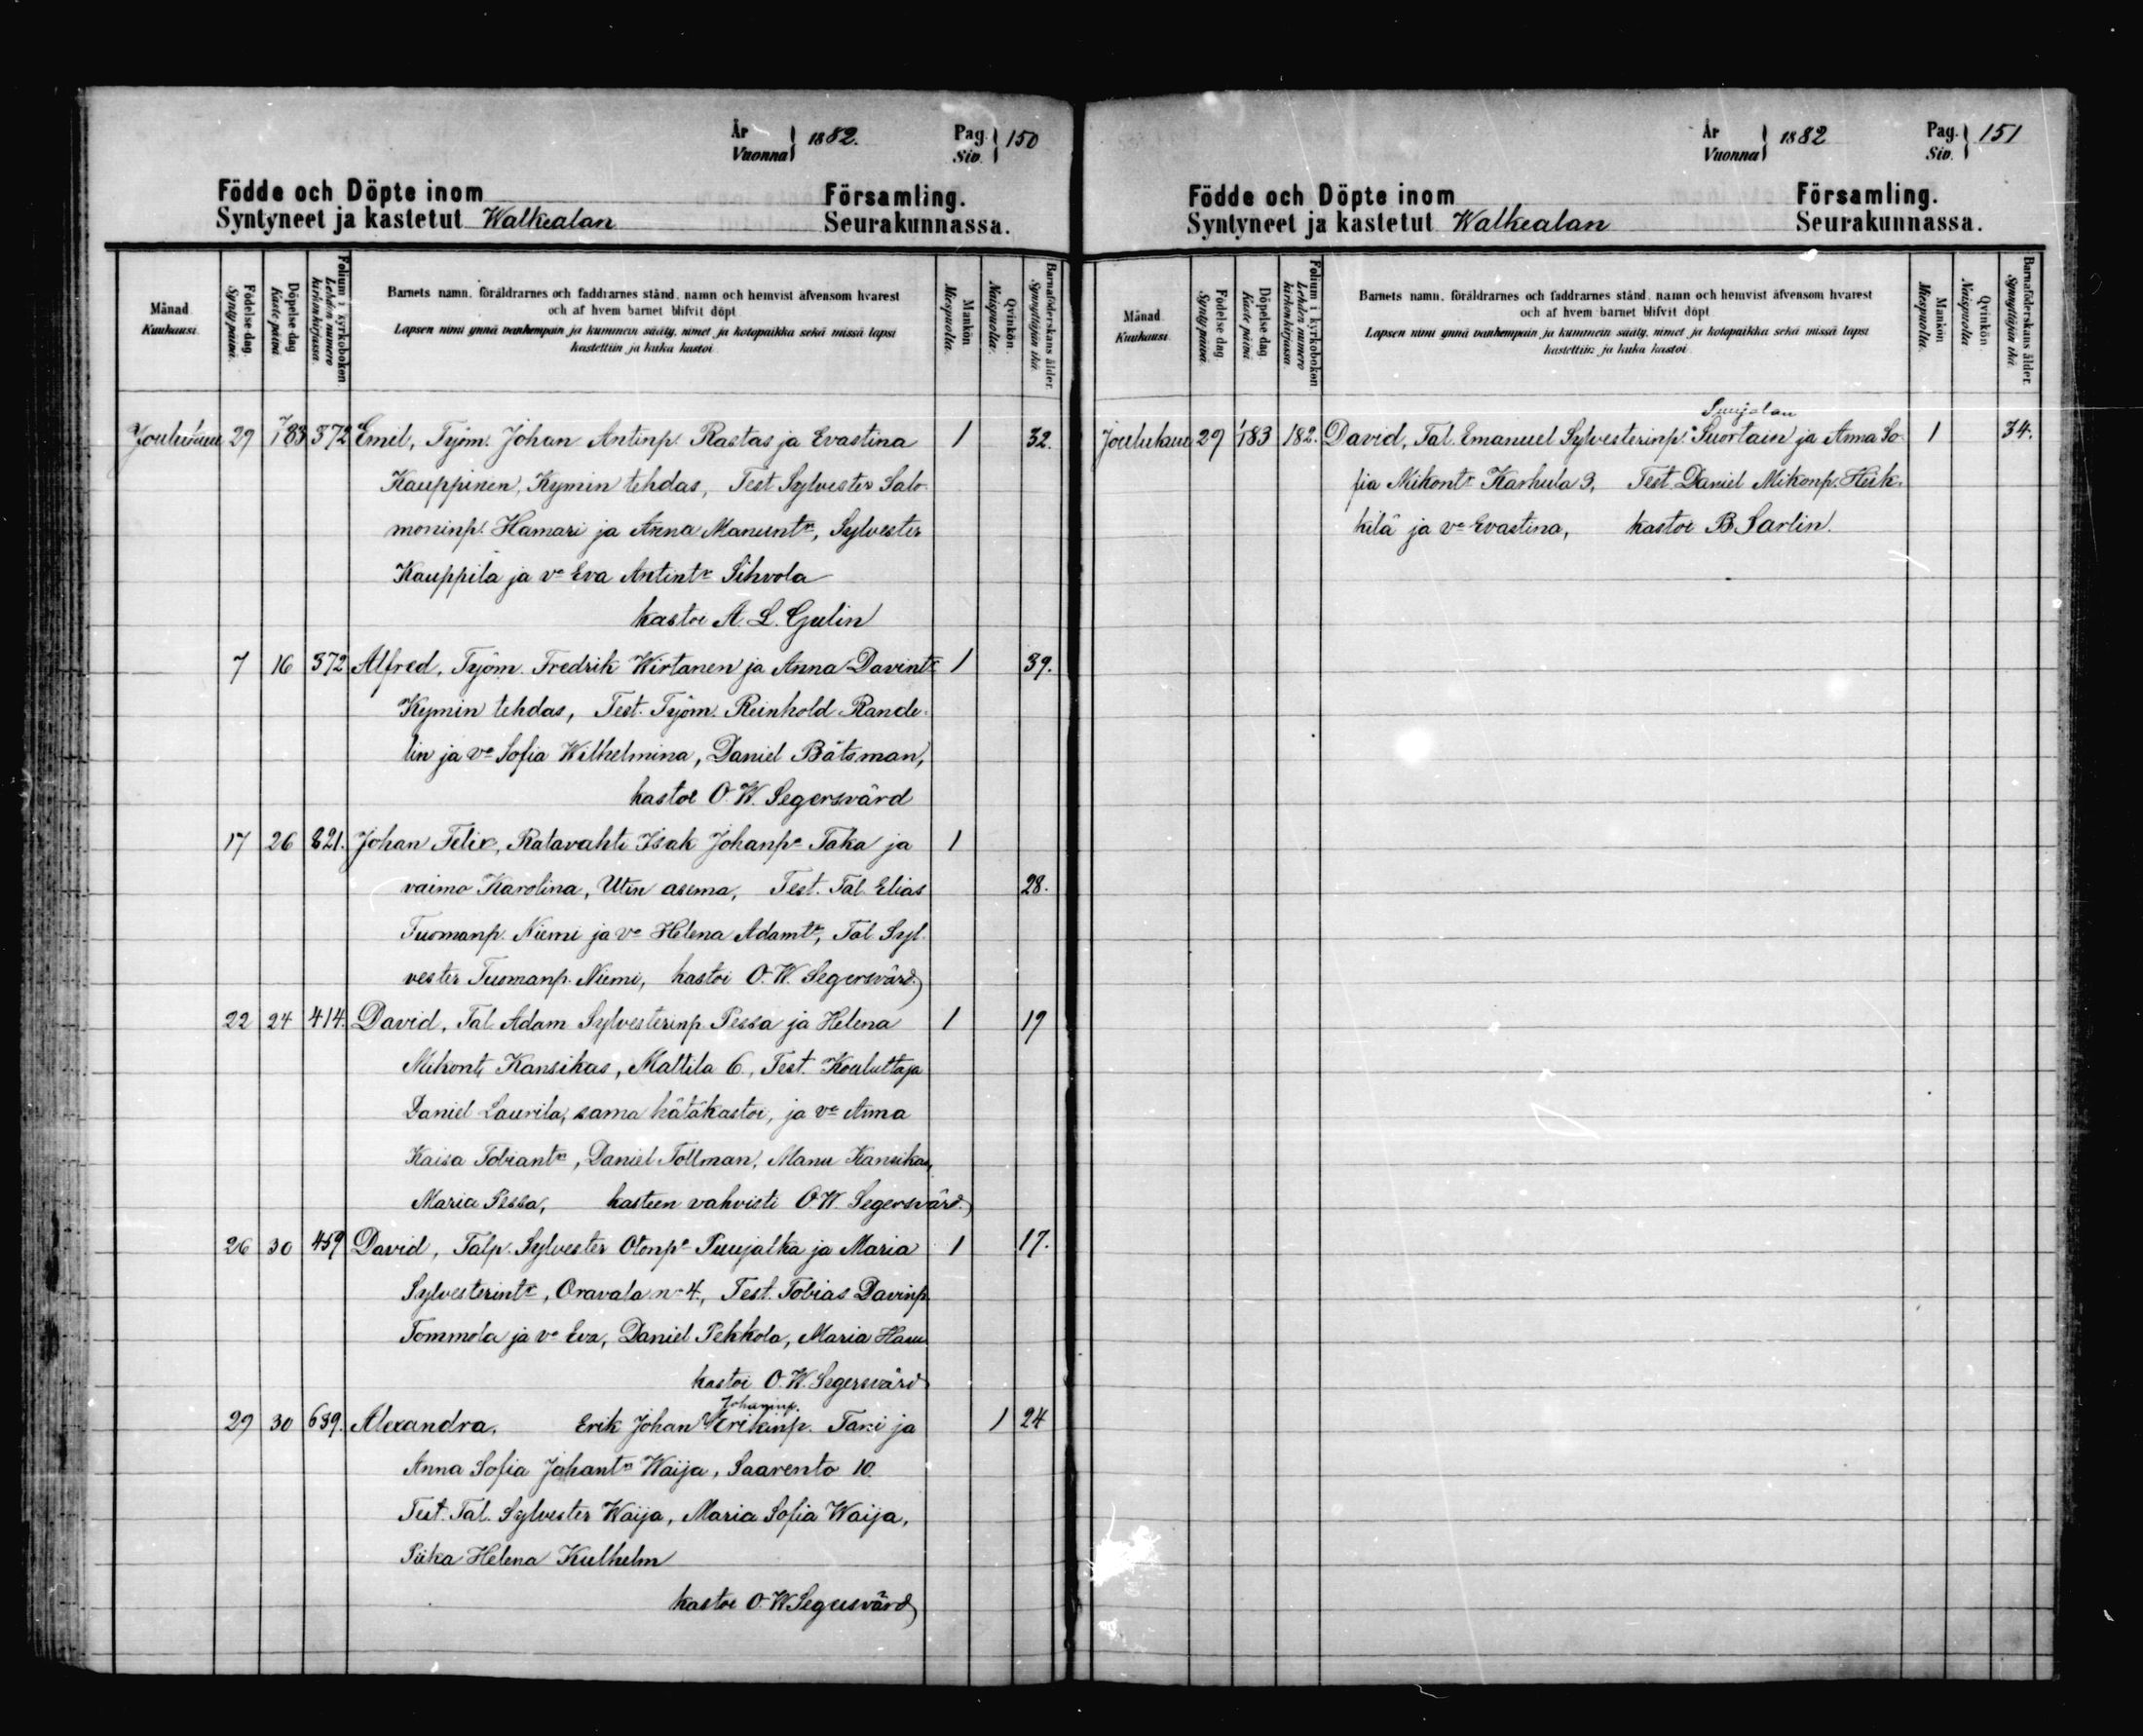 År
Vuonna } 1882.
Pag.
Siv. } 150
Födde och Döpte inom Församling.
Syntyneet ja kastetut Walkealan Seurakunnassa.
Månad
Kuukausi.
Födelse dag.
Synty päivä.
Döpelse dag
Kaste päivä
Folium i kyrkoboken.
Lehden numero
kirkonkirjassa.
Barnets namn, föräldrarnes och faddrarnes stånd, namn och hemvist äfvensom hvarest
och af hvem barnet blifvit döpt
Lapsen nimi ynnä vanhempain ja kummein sääty, nimet ja kotopaikka sekä missä lapsi
kastettiin ja kuka kastoi
Mankön
Miespuolia.
Qvinkön.
Naispuolia.
Barnaföderskans ålder.
Synnyttäjän ikä.
Joulukuu 29 1/83 372 Emil, Työm. Johan Antinp. Rastas ja Evastina 1 32.
Kauppinen, Kymin tehdas, Test Sylvester Salo-
moninp. Hamari ja Anna Manunt:r, Sylvester
Kauppila ja v:o Eva Antint:r Sihvola
kastoi A. L. Gulin
7 16 372 Alfred, Työm. Fredrik Wirtanen ja Anna Davint:r 1 39.
Kymin tehdas, Test. Työm. Reinhold Rande-
lin ja v:o Sofia Wilhelmina, Daniel Båtsman,
kastoi O. W. Segersvärd
17 26 821. Johan Felix, Ratavahti Isak Johanp:a Taka ja 1
vaimo Karolina, Utin asema, Test. Tal. Elias 28.
Tuomanp. Niemi ja v:o Helena Adamt:r, Tal Syl-
vester Tuomanp. Niemi, kastoi O. W. Segersvärd
22 24 414. David, Tal. Adam Sylvesterinp. Pessa ja Helena 1 19
Mikont. Kansikas, Mattila 6., Test. Kouluttaja
Daniel Laurila, sama hätäkastoi, ja v:o Anna
Kaisa Tobiant:r, Daniel Tollman, Manu Kansikas,
Maria Pessa, kasteen vahvisti O. W. Segersvärd.
26 30 459 David, Talp. Sylvester Otonp:a Puujalka ja Maria 1 17.
Sylvesterint:r, Oravala n:o 4., Test. Tobias Davinp.
Tommola ja v:o Eva, Daniel Pekkola, Maria
kastoi O. W. Segersvärd
Johaninp.
29 30 639. Alexandra, Erik Johan Erikinp. Taxi ja 1 24
Anna Sofia Johant:r Waija, Saarento 10.
Test. Tal. Sylvester Waija, Maria Sofia Waija,
Piika Helena Kulhelm
kastoi O. W. Segersvärd
År
Vuonna } 1882
Pag.
Siv. } 151
Födde och Döpte inom Församling.
Syntyneet ja kastetut Walkealan Seurakunnassa.
Månad
Kuukausi
Födelse dag
Synty päivä.
Döpelse dag
Kaste päivä
Folium i kyrkoboken
Lehden numero
kirkonkirjassa
Barnets namn, föräldrarnes och faddrarnes stånd, namn och hemvist äfvensom hvarest
och af hvem barnet blifvit döpt
Lapsen nimi ynnä vanhempain ja kummein sääty, nimet ja kotopaikka sekä missä lapsi
kastettiin ja kuka kastoi
Mankön
Miespuolia.
Qvinkön.
Naispuolia
Barnaföderskans ålder.
Synnyttäjän ikä
Joulukuu 29 1/83 182. David, Tal. Emanuel Sylvesterinp. Suortain ja Anna So- 1 34.
fia Mikont:r Karhula 3, Test. Daniel Mikonp. Heik-
kilä ja v:o Evastina, kastoi B. Sarlin.